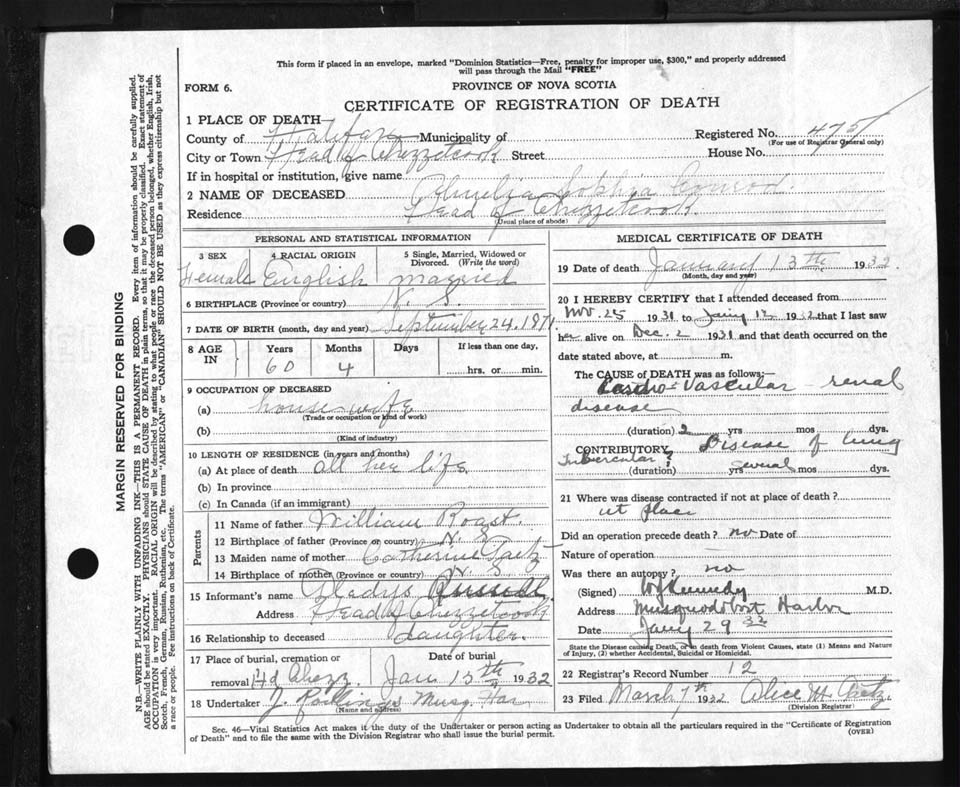 This form if placed in an envelope, marked "Dominion Statistics—Free, penalty for improper use, $300," and properly addressed
will pass through the Mail "FREE"
FORM 6.
PROVINCE OF NOVA SCOTIA
CERTIFICATE OF REGISTRATION OF DEATH
1 PLACE OF DEATH
County of Halifax Municipality of Registered No. 475
(For use of Registrar General only)
City or Town Head of Chezzetcook Street House No.
If in hospital or institution, give name
2 NAME OF DECEASED Sophia Conrod.
Residence Head of Chezzetcook
(Usual place of abode)
PERSONAL AND STATISTICAL INFORMATION
3 SEX 4 RACIAL ORIGIN 5 Single, Married, Widowed or Divorced. (Write the word)
Female English married
6 BIRTHPLACE (Province or country) N. S.
7 DATE OF BIRTH (month, day and year) September 24. 1871
8 AGE IN Years Months Days If less than one day,
60 4 hrs. or min.
9 OCCUPATION OF DECEASED
(a) housewife
(Trade or occupation or kind of work)
(b)
(Kind of industry)
10 LENGTH OF RESIDENCE (in years and months)
(a) At place of death all her life
(b) In province
(c) In Canada (if an immigrant)
Parents
11 Name of father William Roast.
12 Birthplace of father (Province or country) N. S.
13 Maiden name of mother Catherine Gaetz
14 Birthplace of mother (Province or country) N. S.
15 Informant's name Gladys Russell
Address Head of Chezzetcook
16 Relationship to deceased daughter.
17 Place of burial, cremation or removal Hd Chezz. Date of burial Jan 15th 1932
18 Undertaker J. Rowlings Musq. Har
(Name and address)
MEDICAL CERTIFICATE OF DEATH
19 Date of death January 13th 1932.
(Month, day and year)
20 I HEREBY CERTIFY that I attended deceased from
Nov. 25 1931 to Jany 12 1932 that I last saw
her alive on Dec. 2 1931 and that death occurred on the
date stated above, at m.
The CAUSE OF DEATH was as follows:
Cardio-Vascular renal
disease
(duration) 2 yrs mos dys.
CONTRIBUTORY Disease of lung
Tubercular?
(duration) several yrs mos dys.
21 Where was disease contracted if not at place of death?
at place
Did an operation precede death? no Date of
Nature of operation
Was there an autopsy? no
(Signed) WJ Kennedy M.D.
Address Musquodoboit Harbor
Date Jany 29 32
State the Disease causing Death, or in death from Violent Causes, state (1) Means and Nature
of Injury, (2) whether Accidental, Suicidal or Homicidal.
22 Registrar's Record Number 12
23 Filed March 7th 1932 Alice M. Gaetz
(Division Registrar)
Sec. 46—Vital Statistics Act makes it the duty of the Undertaker or person acting as Undertaker to obtain all the particulars required in the "Certificate of Registration
of Death" and to file the same with the Division Registrar who shall issue the burial permit.
(OVER)
MARGIN RESERVED FOR BINDING
N.B.—WRITE PLAINLY WITH UNFADING INK—THIS IS A PERMANENT RECORD. Every item of information should be carefully supplied.
AGE should be stated EXACTLY. PHYSICIANS should STATE CAUSE OF DEATH in plain terms, so that it may be properly classified. Exact statement of
OCCUPATION is very important. RACIAL ORIGIN will be described by stating to what people or race the deceased person belonged, whether English, Irish,
Scotch, French, German, Russian, Ruthenian, etc. The terms "AMERICAN" or "CANADIAN" SHOULD NOT BE USED as they express citizenship but not
a race or people. Fee instructions on back of Certificate.